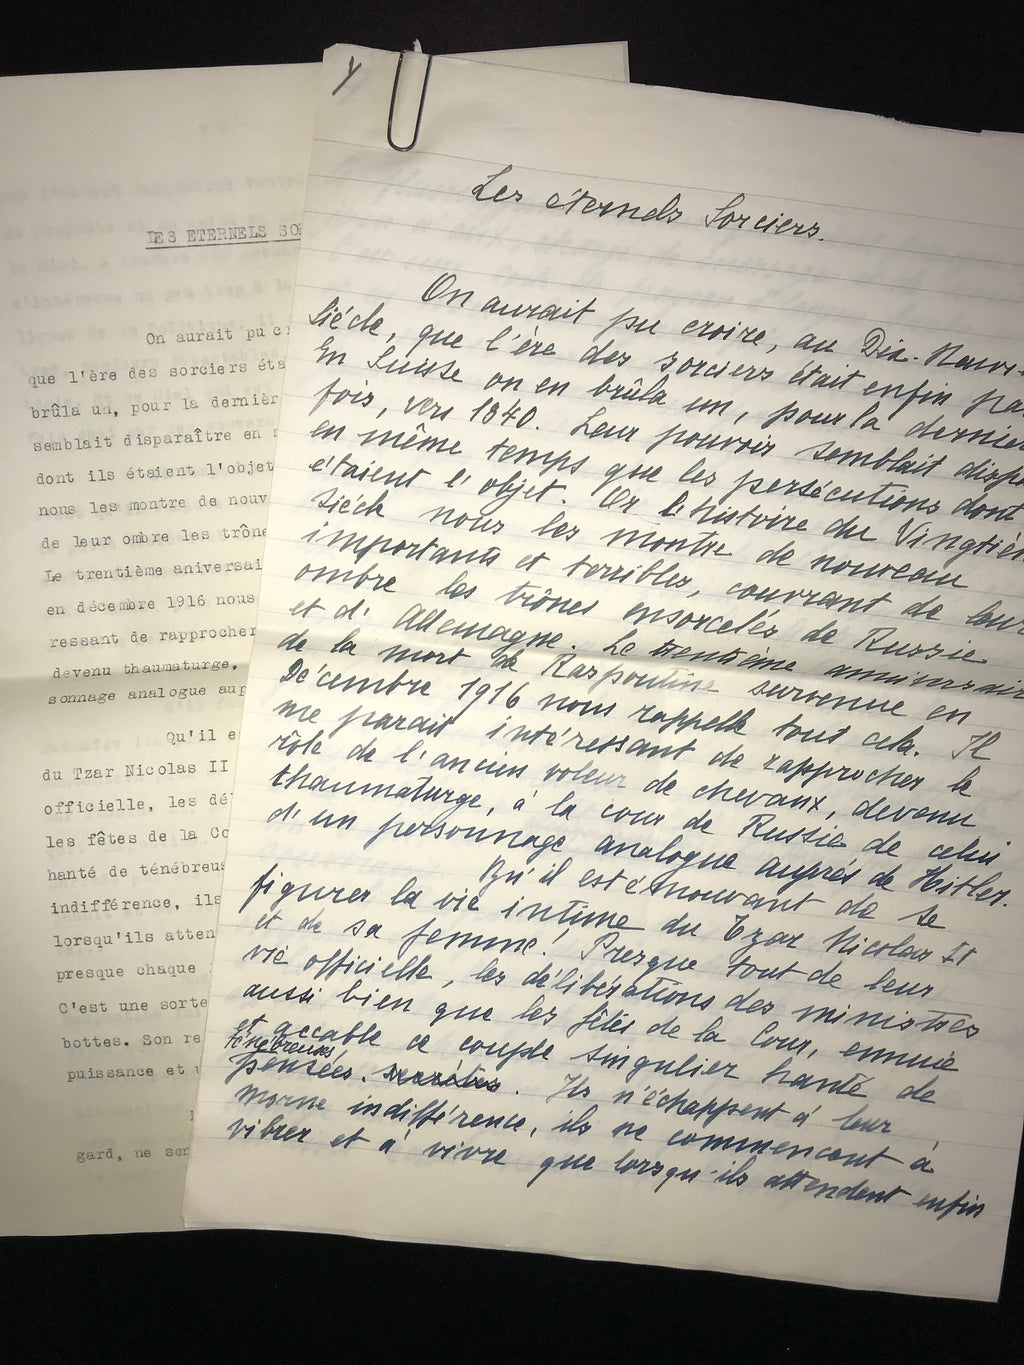 LES ETERNELS SOR
On aurait pu c
que l'ère des sorciers éta
brûla un, pour la dernièr
semblait disparaître en
dont ils étaient l'objet
nous les montre de nouv
de leur ombre les trône
Le trentième aniversai
en décembre 1916 nous
ressant de rapprocher
devenu thaumaturge,
sonnage analogue aup
Qu'il e
du Tzar Nicolas II
officielle, les dé
les fêtes de la Co
hanté de ténébreus
indifférence, ils
lorsqu'ils atten
presque chaque
C'est une sorte
bottes. Son re
puissance et
gard, ne ser
Y
Les éternels Sorciers.
On aurait pu croire, au Dix-Neuv-
Siécle, que l'ère des sorciers était enfin pas
En Suisse on en brûla un, pour la dernièr
fois, vers 1840. Leur pouvoir semblait dispa
en même temps que les persécutions dont
étaient l'objet. Or l'histoire du Vingtièm
siécle nous les montre de nouveau
importants et terribles, couvrant de leur
ombre les trônes ensorcelés de Russie
et d'Allemagne. Le trentième anniversair
de la mort de Raspoutine survenue en
Décembre 1916 nous rappelle tout cela. Il
me parait intéressant de rapprocher le
rôle de l'ancien voleur de chevaux, devenu
thaumaturge, à la cour de Russie de celui
d'un personnage analogue auprés de Hitler.
Qu'il est émouvant de se
figurer la vie intime du Tzar Nicolas II
et de sa femme! Presque tout de leur
vie officielle, les délibérations des ministres
aussi bien que les fêtes de la Cour, ennuie
et accable ce couple singulier hanté de
ténébreuses
pensées. secrètes. Ils n'échappent à leur
morne indifférence, ils ne commencent à
vibrer et à vivre que lorsqu'ils attendent enfin